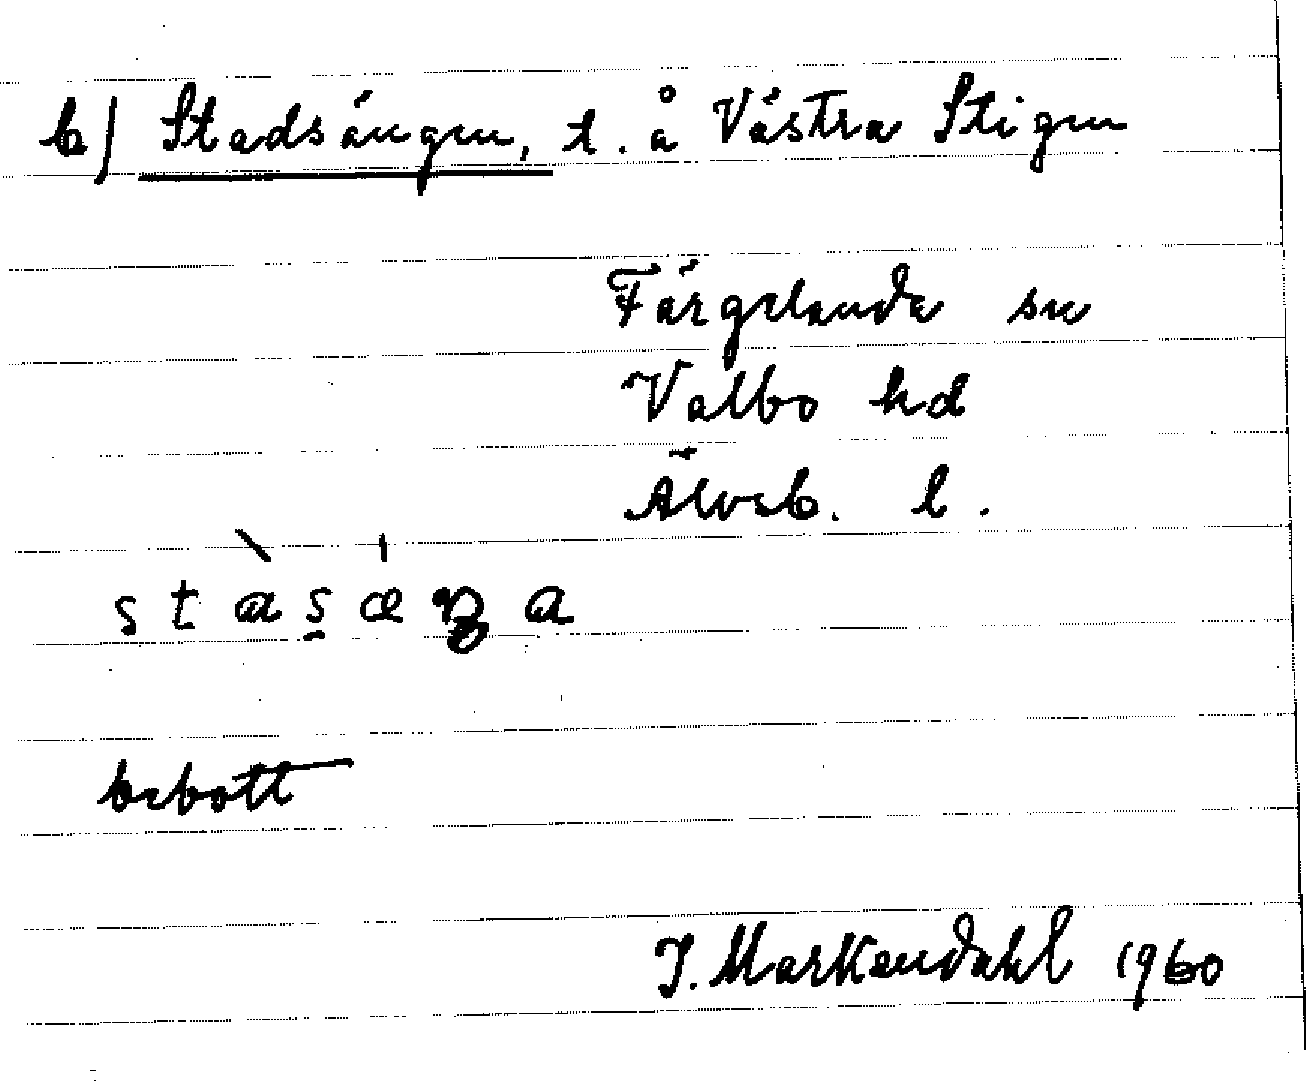 b) Stadsängen, t. å Västra Stigen
Färgelanda sn
Valbo hd
Älvsb. l.
stàsæ̍ŋa
bebott
J. Markendahl 1960